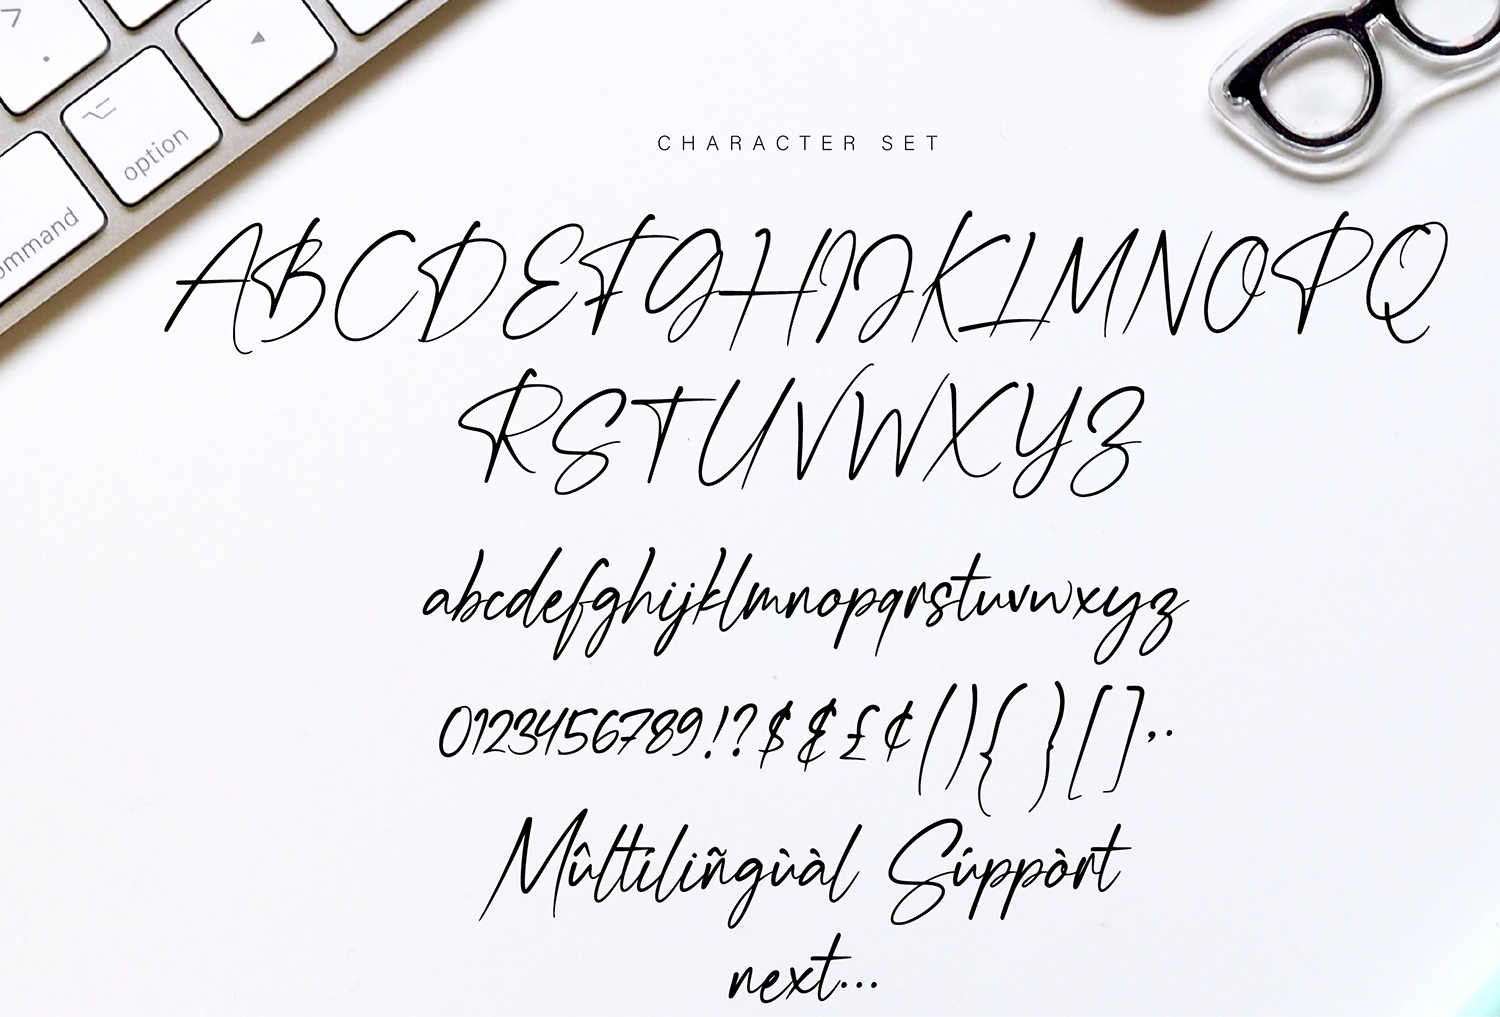 7
.
option
ommand
CHARACTER SET
ABCDEFGHIJKLMNOPQ
RSTUVWXYZ
abcdefghijklmnopqrstuvwxyz
0123456789!?$&£¢(){}[],.
Mûltiliñgùàl Súppòrt
next...